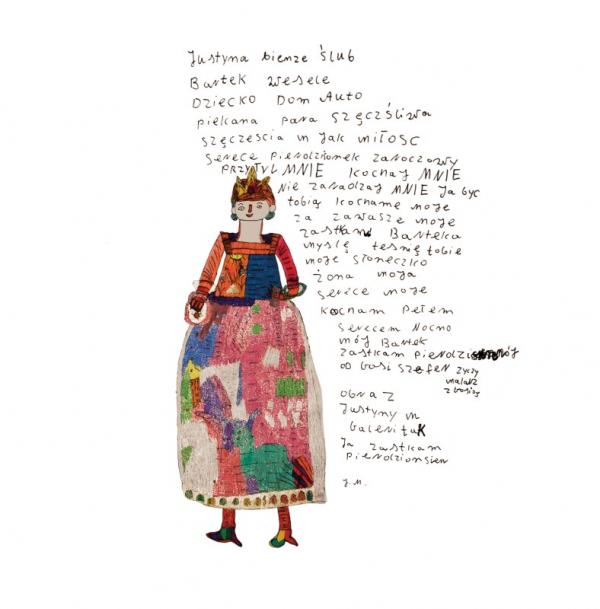 Justyna bienze ślub
Bartek wesele
Dziecko Dom Auto
piekana para szęczśliwa
szęczescia m jak miłosc
serece pierdzionek zaroczowy
przytul MNIE kochaj MNIE
nie zaradzaj MNIE ja być
tobią kochame moje
za zawasze moje
zastkam Barteka
myslę tesnię tobie
moje słoneczko
żona moja
serece moje
kocham pełem
serecem Nocno
mój Bartek
zastkam pierdzio mój
od basi szefen życzy
malaz
z basią
obraz
Justyny m
Galeriłak
Ja zastkam
pierdzionsien
J.M.